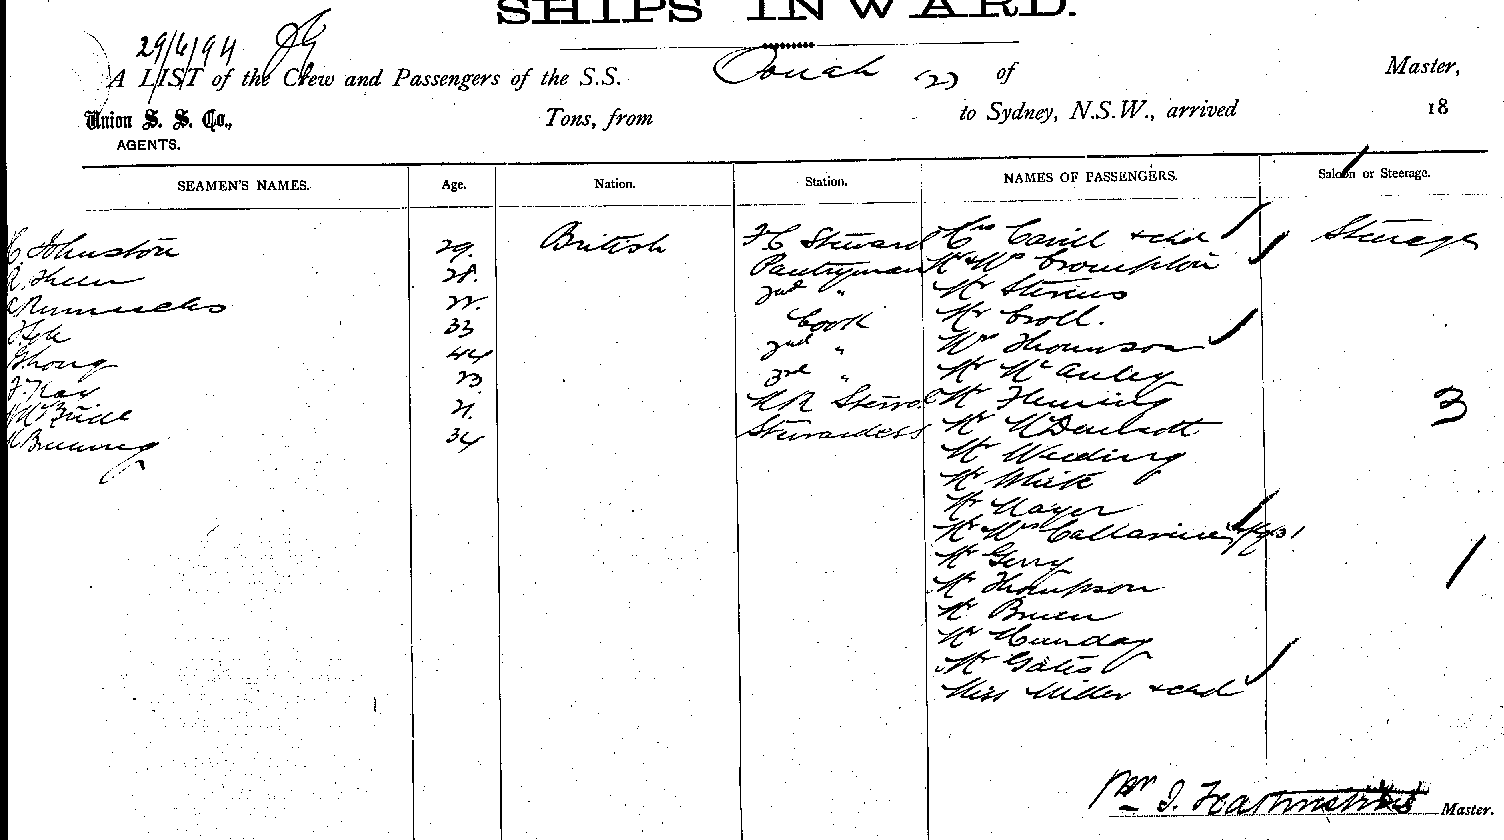 SHIPS INWARD.
29/6/94
A LIST of the Crew and Passengers of the S.S. Oonah (2) of Master,
Union S. S. Co., Tons, from to Sydney, N.S.W., arrived 18
AGENTS.
SEAMEN'S NAMES. Age. Nation. Station. NAMES OF PASSENGERS. Saloon or Steerage.
C Johnston 29. British F C Steward Mrs Cavill & chd Steerage
R. Sheen 28. Pantryman Mr & Mrs Crompton
22. 2nd " Mr Stevens
33 Cook Mr Croll.
44 2nd " Mrs Thomson
23 3rd " Mr McAuley
McBride 21. Mr Fleming 3
34 Stewardess Mr McDermott
Mr Weeding
Mr White
Mr Mayer
Mr Mrs
Mr Gerry 1
Mr Thompson
Mr Breen
Mr Munday
Mr Gates
Miss Miller & chd
Master.